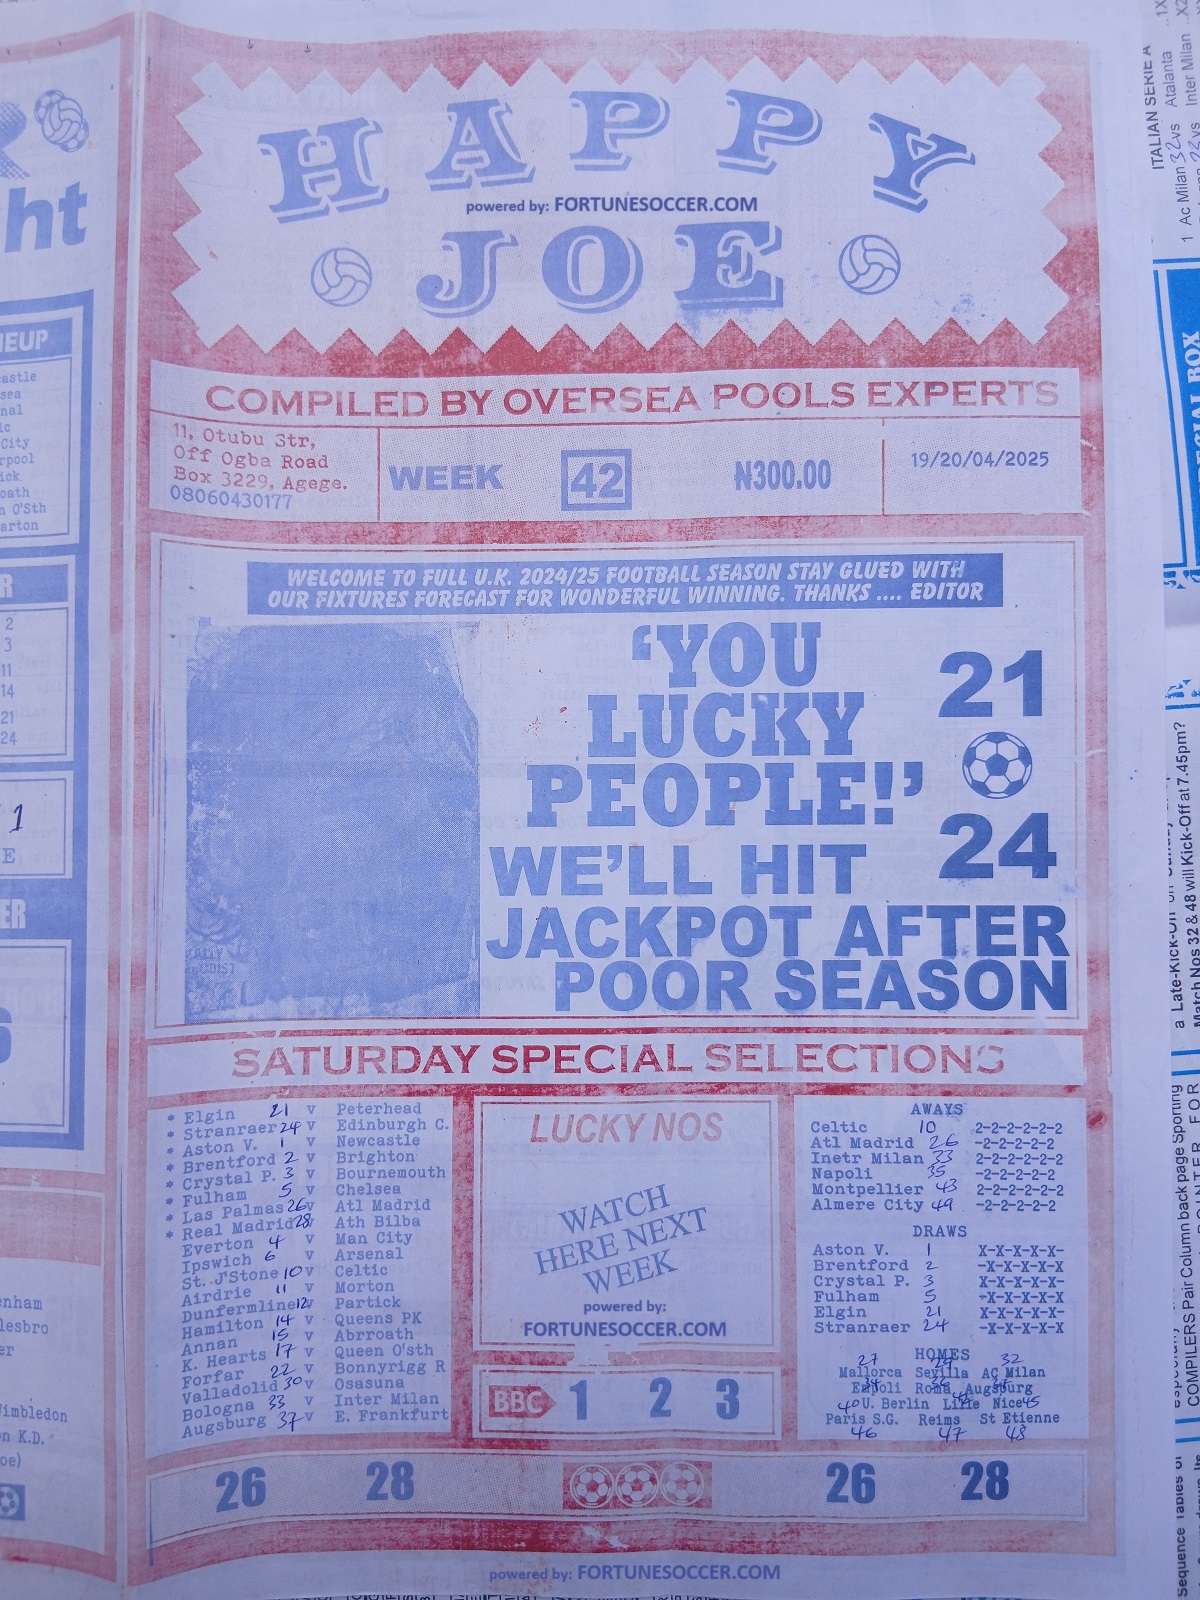 HAPPY
powered by: FORTUNESOCCER.COM
JOE
COMPILED BY OVERSEA POOLS EXPERTS
11, Otubu Str,
Off Ogba Road
Box 3229, Agege.
08060430177
WEEK 42
₦300.00
19/20/04/2025
WELCOME TO FULL U.K. 2024/25 FOOTBALL SEASON STAY GLUED WITH
OUR FIXTURES FORECAST FOR WONDERFUL WINNING. THANKS .... EDITOR
'YOU
LUCKY
PEOPLE!'
21
24
WE'LL HIT
JACKPOT AFTER
POOR SEASON
SATURDAY SPECIAL SELECTIONS
* Elgin 21 v Peterhead
* Stranraer 24 v Edinburgh C.
* Aston V. 1 v Newcastle
* Brentford 2 v Brighton
* Crystal P. 3 v Bournemouth
* Fulham 5 v Chelsea
* Las Palmas 26 v Atl Madrid
* Real Madrid 28 v Ath Bilba
Everton 4 v Man City
Ipswich 6 v Arsenal
St. J'Stone 10 v Celtic
Airdrie 11 v Morton
Dunfermline 12 v Partick
Hamilton 14 v Queens PK
Annan 15 v Abrroath
K. Hearts 17 v Queen O'sth
Forfar 22 v Bonnyrigg R
Valladolid 30 v Osasuna
Bologna 33 v Inter Milan
Augsburg 37 v E. Frankfurt
LUCKY NOS
WATCH
HERE NEXT
WEEK
powered by:
FORTUNESOCCER.COM
BBC 1 2 3
AWAYS
Celtic 10 2-2-2-2-2-2
Atl Madrid 26 -2-2-2-2-2
Inetr Milan 33 2-2-2-2-2-2
Napoli 35 -2-2-2-2-2
Montpellier 43 2-2-2-2-2-2
Almere City 49 -2-2-2-2-2
DRAWS
Aston V. 1 X-X-X-X-X-
Brentford 2 -X-X-X-X-X
Crystal P. 3 X-X-X-X-X-
Fulham 5 -X-X-X-X-X
Elgin 21 X-X-X-X-X-
Stranraer 24 -X-X-X-X-X
HOMES
27 29 32
Mallorca Sevilla AC Milan
Empoli Roma Augsburg
40 U. Berlin Lille Nice 45
Paris S.G. Reims St Etienne
46 47 48
26 28
26 28
powered by: FORTUNESOCCER.COM
ITALIAN SERIE A
1 Ac Milan 32 vs Atalanta
Inter Milan
Match Nos 32 & 48 will Kick-Off at 7.45pm?
COMPILERS Pair Column back page Sporting